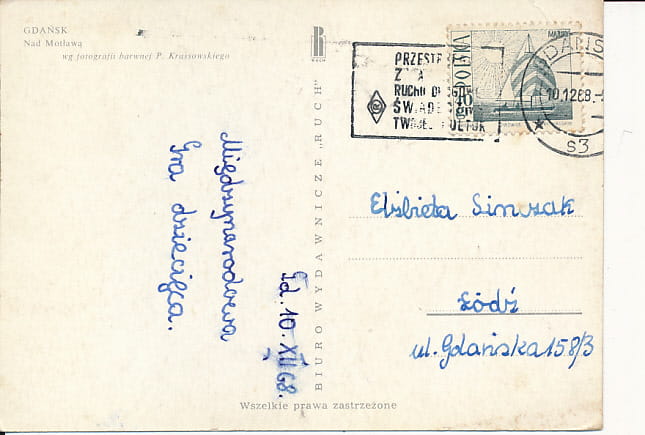 GDAŃSK
Nad Motławą
wg fotografii barwnej P. Krassowskiego
RUCH
Międzynarodowa
Gra dziecięca.
Gd. 10. XII 68.
BIURO WYDAWNICZE „RUCH”
Wszelkie prawa zastrzeżone
PRZEST
RUCHU
ŚWIADE
TWOJEJ
POLSKA
40 gr
10.12.68.
S3
Elżbieta
Łódź
ul. Gdańska 158/3